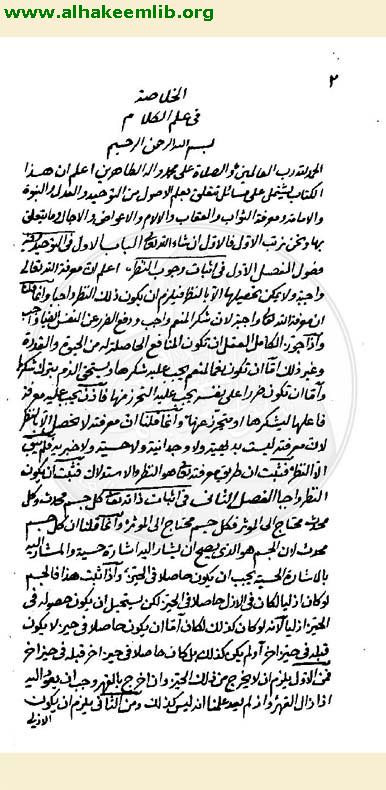 www.alhakeemlib.org
٢
الخلاصة
في علم الكلام
بسم الله الرحمن الرحيم
الحمد لله رب العالمين والصلاة على محمد واله الطاهرين اعلم ان هذا
الكتاب يشتمل على مسائل تتعلق بعلم الاصول من التوحيد والعدل والنبوة
والامامة ومعرفة الثواب والعقاب والالام والاعواض والاجال وما يتعلق
بها ونحن نرتب الاول فالاول ان شاء الله تعالى الباب الاول في التوحيد وفيه
فصول الفصل الاول في اثبات وجوب النظر، اعلم ان معرفة الله تعالى
واجبة ولا يمكن تحصيلها الا بالنظر فيلزم ان يكون ذلك النظر واجبا وانما قلنا
ان معرفة الله تعالى واجبة لان شكر المنعم واجب ودفع الضرر عن النفس ايضا واجب
واذا جوز الكامل العقل ان تكون المنافع الحاصلة له من الحيوة والقدرة
وغير ذلك اما ان تكون نعما لمنعم يجب عليه شكرها ويستحق الذم بترك شكرها
واما ان تكون ضررا على نفسه يجب عليه التحرز منها فاذن يجب عليه معرفة
فاعلها ليشكرها او يتحرز عنها وانما قلنا ان معرفته لا تحصل الا بالنظر
لان معرفته ليست بديهية ولا وجدانية ولا حسية ولا خبرية فلم يبق
الا النظر فثبت ان طريق معرفته تعالى هو النظر والاستدلال فثبت ان يكون
النظر واجبا الفصل الثاني في اثبات ذاته تعالى كل جسم محدث وكل
محدث محتاج الى المؤثر فكل جسم محتاج الى المؤثر وانما قلنا ان كل جسم
محدث لان الجسم هو الذي يصح ان يشار اليه اشارة حسية والمشار اليه
بالاشارة الحسية يجب ان يكون حاصلا في الحيز، واذا ثبت هذا فالجسم
لو كان ازليا لكان في الازل حاصلا في الحيز لكن يستحيل ان يكون حصوله في
الحيز ازليا لانه لو كان كذلك لكان اما ان يكون حاصلا في حيز لا يكون
قبله في حيز اخر او لم يكن كذلك بل كان حاصلا في حيز اخر قبله في حيز اخر
فمن الاول يلزم ان لا يخرج من ذلك الحيز وان اخرج بالقهر وجب ان يعود اليه
اذا زال القهر واذ لم يعد علمنا انه ليس كذلك ومن الثاني يلزم ان يكون
الازلي